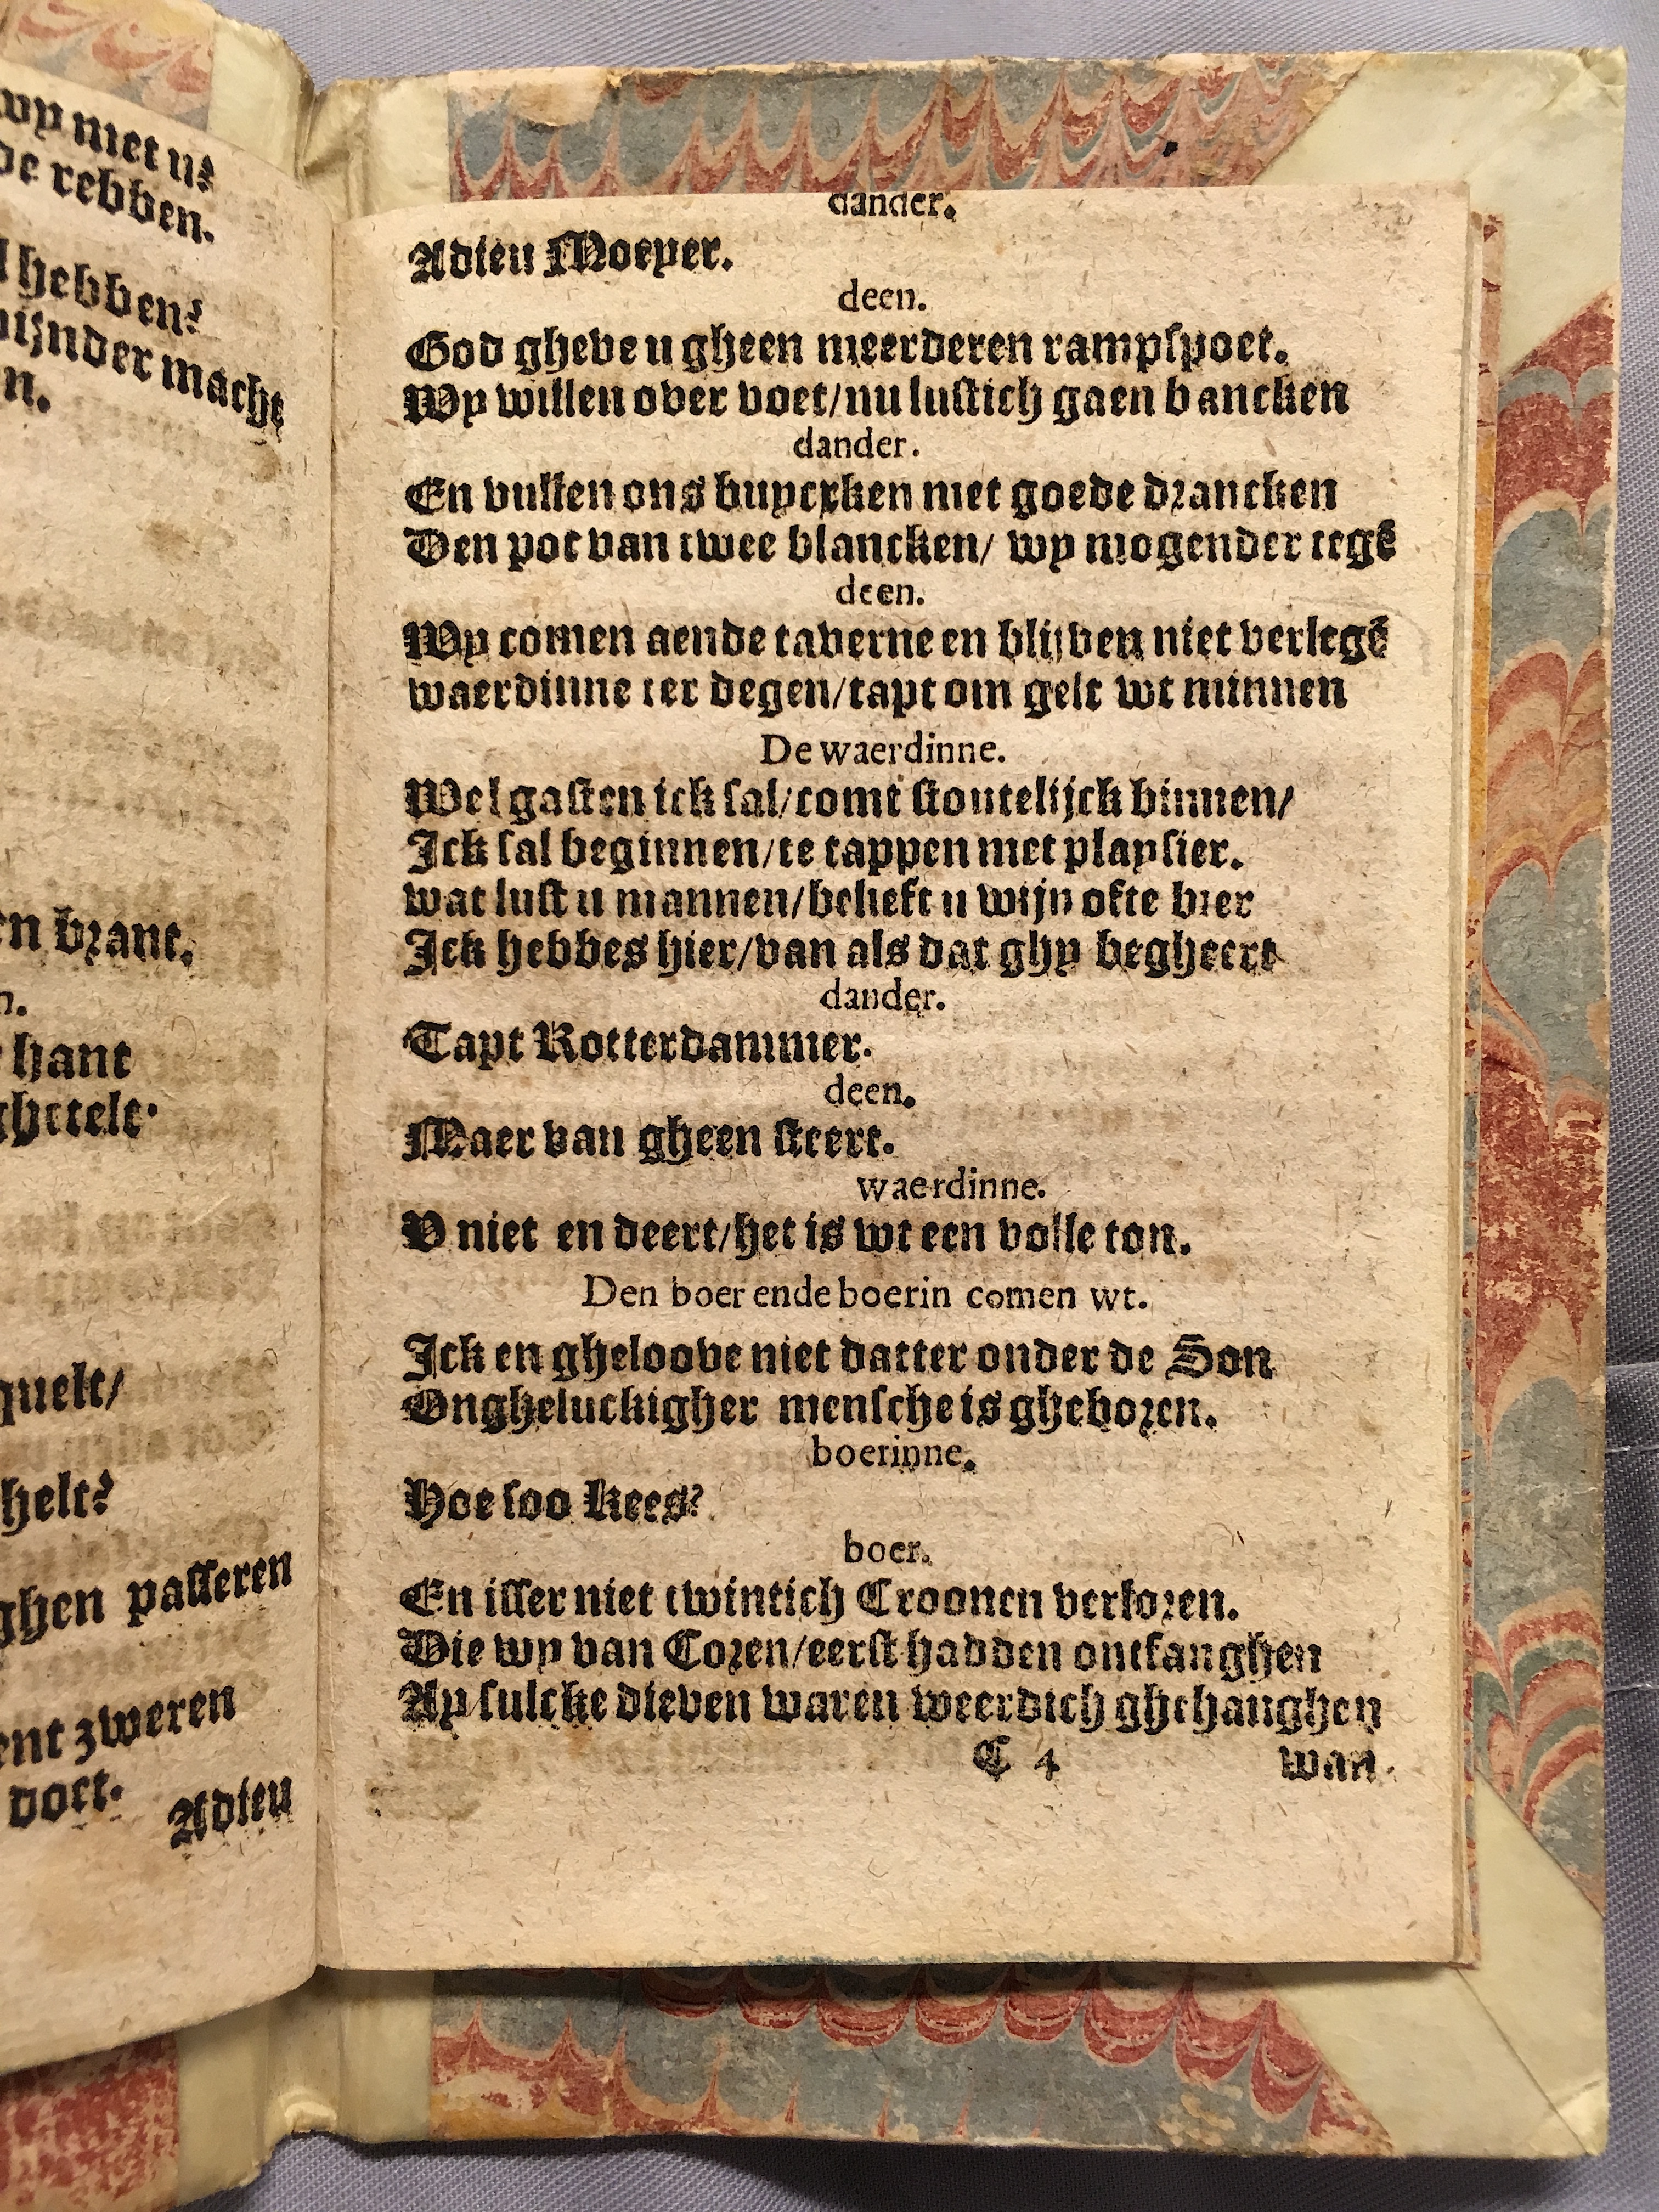 wy met u?
de rebben.
hebben?
wijnder macht
n.
en brant.
n.
hant
ghetelt.
quelt/
helt?
ghen passeren
ent zweren
doet.
Adieu
dander.
Adieu Moeyer.
deen.
God gheve u gheen meerderen rampspoet.
Wy willen over voet/nu lustich gaen bancken
dander.
En vullen ons buycxken met goede drancken
Den pot van twee blancken/ wy mogender tegē
deen.
Wy comen aende taverne en blijven niet verlegē
waerdinne ter degen/tapt om gelt wt minnen
De waerdinne.
Wel gasten ick sal/comt stoutelijck binnen/
Ick sal beginnen/te tappen met playsier.
wat lust u mannen/belieft u wijn ofte bier
Ick hebbes hier/van als dat ghy begheert
dander.
Tapt Rotterdammer.
deen.
Maer van gheen steert.
waerdinne.
V niet en deert/het is wt een volle ton.
Den boer ende boerin comen wt.
Ick en gheloove niet datter onder de Son
Ongheluckigher mensche is gheboren.
boerinne.
Hoe soo Kees?
boer.
En isser niet twintich Croonen verloren.
Die wy van Coren/eerst hadden ontfanghen
Ay sulcke dieven waren weerdich ghehanghen
C 4 wan.